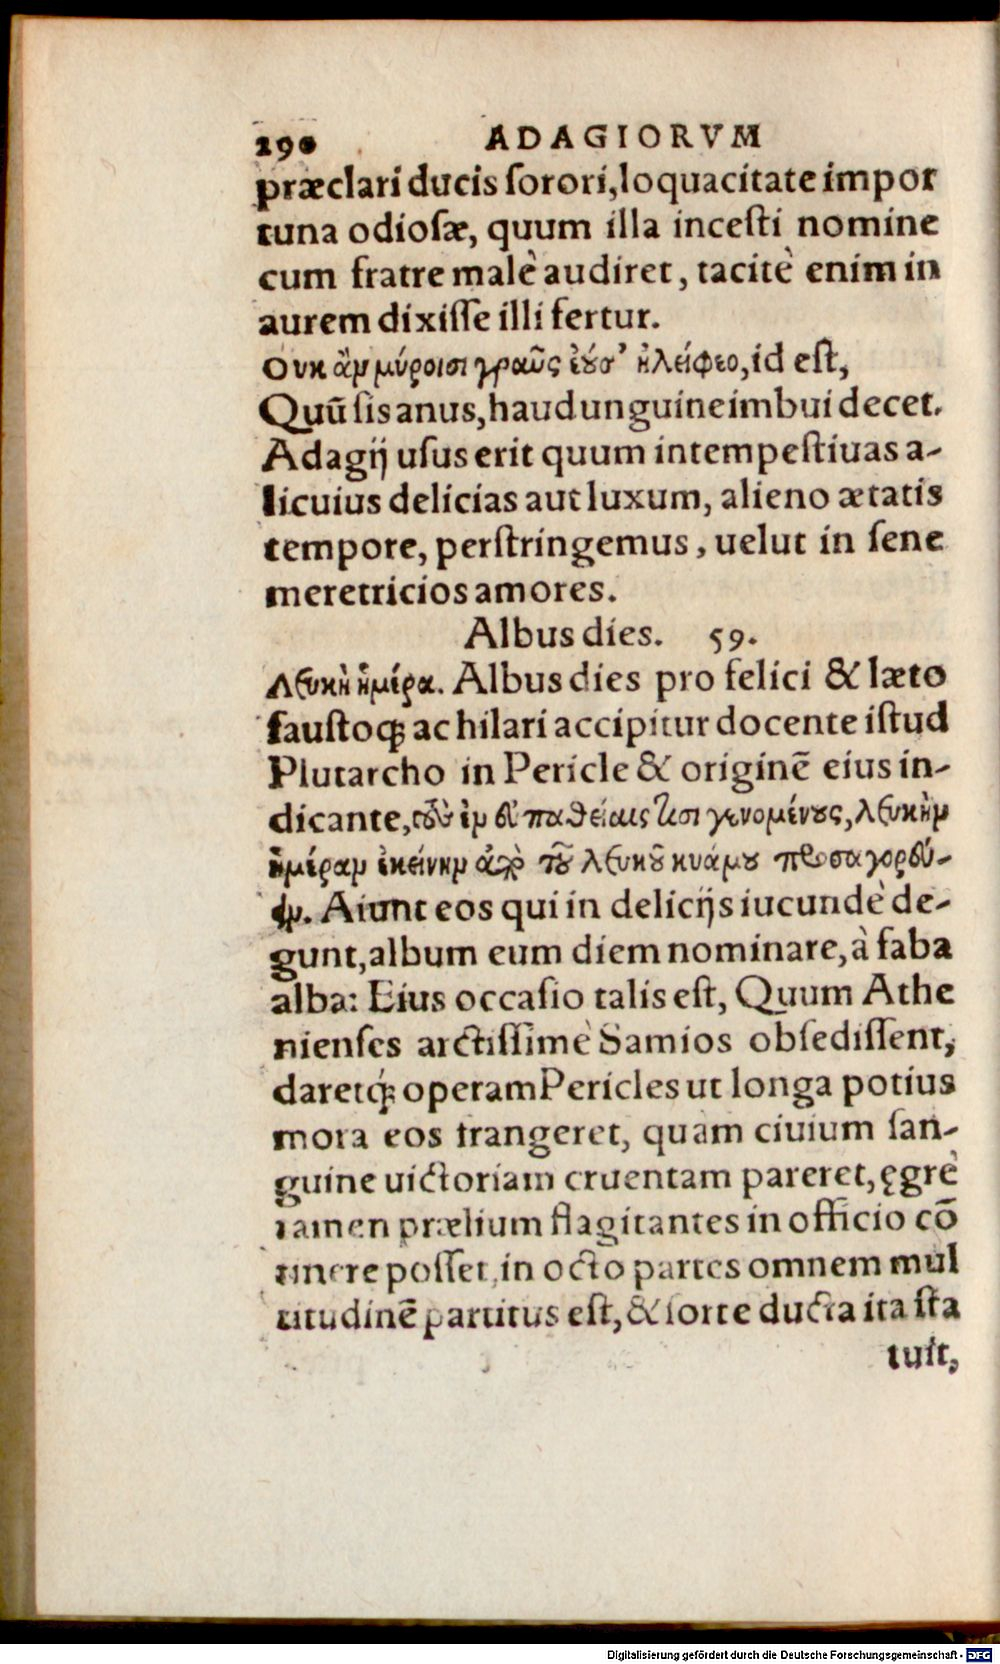 290 ADAGIORVM
præclari ducis ſorori, loquacitate impor
tuna odioſæ, quum illa inceſti nomine
cum fratre malè audiret, tacitè enim in
aurem dixiſſe illi fertur.
Ουκ ἂν μύροισι γραῦς ἐοῦσ’ ἠλείφεο, id eſt,
Quũ ſis anus, haud unguine imbui decet.
Adagij uſus erit quum intempeſtiuas a-
licuius delicias aut luxum, alieno ætatis
tempore, perſtringemus, uelut in ſene
meretricios amores.
Albus dies. 59.
Λευκὴ ἡμέρα. Albus dies pro felici & læto
fauſtoq́; ac hilari accipitur docente iſtud
Plutarcho in Pericle & originẽ eius in-
dicante, τοὺς ἐν εὐπαθείαις τισὶ γενομένους, λευκὴν
ἡμέραν ἐκείνην ἀπὸ τοῦ λευκοῦ κυάμου προσαγορεύ-
ειν. Aiunt eos qui in delicijs iucundè de-
gunt, album eum diem nominare, à faba
alba: Eius occaſio talis eſt, Quum Athe
nienſes arctiſſimè Samios obſediſſent,
daretq́; operam Pericles ut longa potius
mora eos frangeret, quàm ciuium ſan-
guine uictoriam cruentam pareret, ęgrè
tamen prælium flagitantes in officio cõ
tinere poſſet, in octo partes omnem mul
titudinẽ partitus eſt, & ſorte ducta ita ſta
tuit,
Digitalisierung gefördert durch die Deutsche Forschungsgemeinschaft - DFG